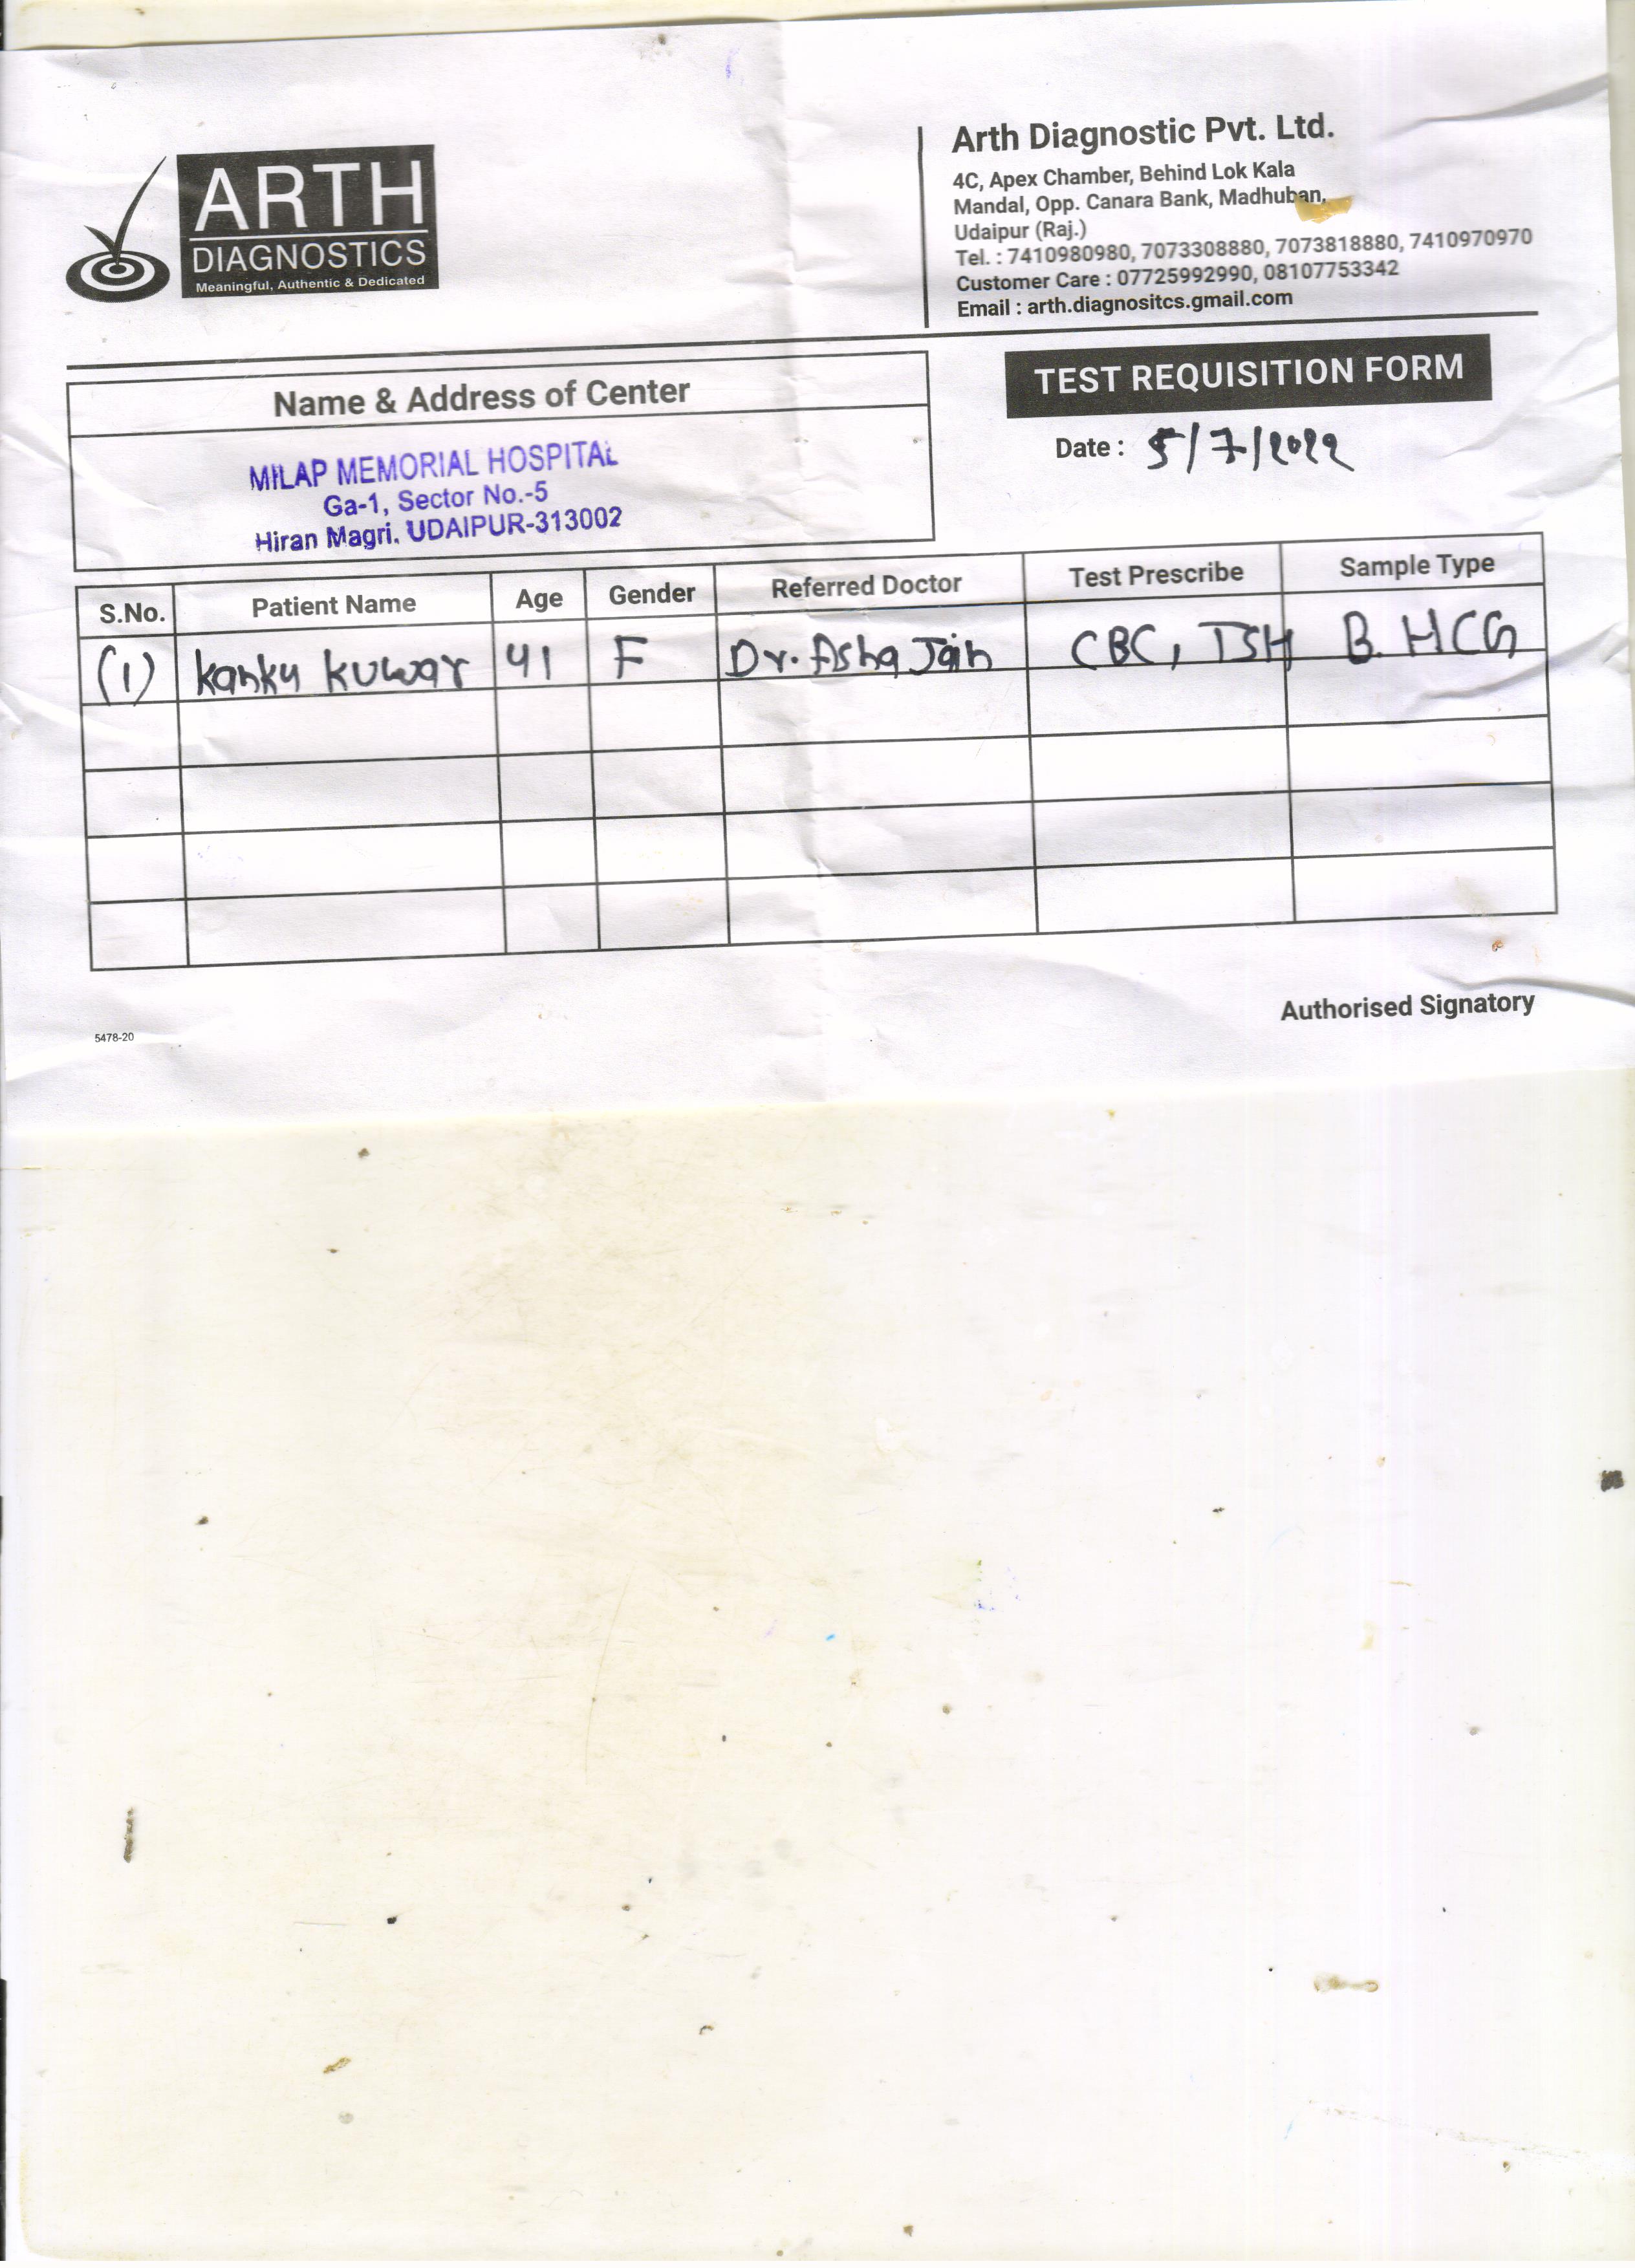 ARTH
DIAGNOSTICS
Meaningful, Authentic & Dedicated
Arth Diagnostic Pvt. Ltd.
4C, Apex Chamber, Behind Lok Kala
Mandal, Opp. Canara Bank, Madhuban,
Udaipur (Raj.)
Tel. : 7410980980, 7073308880, 7073818880, 7410970970
Customer Care : 07725992990, 08107753342
Email : arth.diagnositcs.gmail.com
Name & Address of Center
MILAP MEMORIAL HOSPITAL
Ga-1, Sector No.-5
Hiran Magri. UDAIPUR-313002
TEST REQUISITION FORM
Date : 5/7/2022
S.No. Patient Name Age Gender Referred Doctor Test Prescribe Sample Type
(1) Kanku Kuwar 41 F Dr. Asha Jain CBC, TSH B. HCG
Authorised Signatory
5478-20